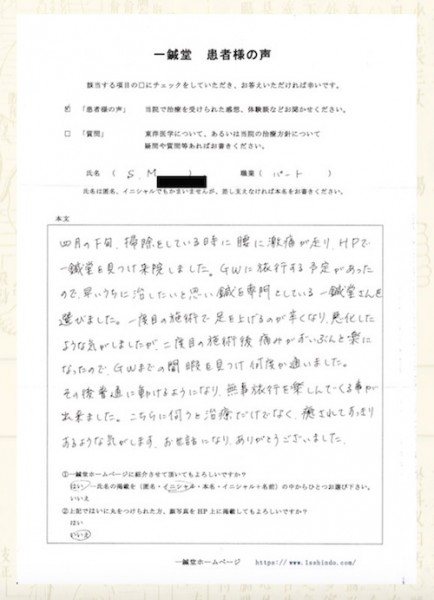 一鍼堂 患者様の声
該当する項目の□にチェックをしていただき、お答えいただければ幸いです。
☑ 「患者様の声」 当院で治療を受けられた感想、体験談などお聞かせください。
□ 「質問」 東洋医学について、あるいは当院の治療方針について
疑問や質問等あればお書きください。
氏名 ( S.M ) 職業( パート )
氏名は匿名、イニシャルでもかまいませんが、差し支えなければ本名をお書きください。
本文
四月の下旬、掃除をしている時に腰に激痛が走り、HPで
一鍼堂を見つけ来院しました。GWに旅行する予定があった
ので、早いうちに治したいと思い鍼を専門としている一鍼堂さんを
選びました。一度目の施術で足を上げるのが辛くなり、悪化した
ような気がしましたが、二度目の施術後痛みがずいぶんと楽に
なったので、GWまでの間暇を見つけ何度か通いました。
その後普通に動けるようになり、無事旅行を楽しんでくる事が
出来ました。こちらに伺うと治療だけでなく、癒されてすっきり
するような気がします。お世話になり、ありがとうございました。
①一鍼堂ホームページに紹介させて頂いてもよろしいですか?
はい―氏名の掲載を (匿名・イニシャル・本名・イニシャル+名前) の中からひとつお選び下さい。
いいえ
②上記ではいに丸をつけられた方、顔写真をHP上に掲載してもよろしいですか?
はい
いいえ
一鍼堂ホームページ https://www.1sshindo.com/